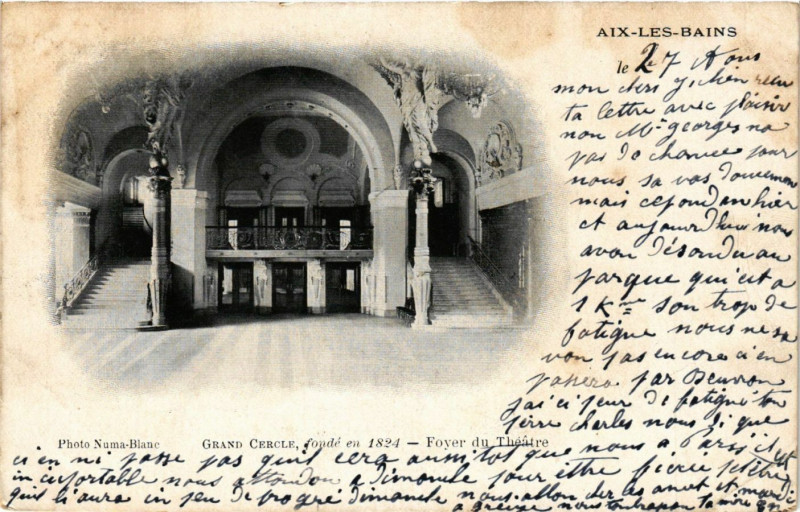 AIX-LES-BAINS
le 27 Aous
mon chers
ta lettre avec plaisir
non Mr georges na
pas de chance pour
nous sa vas doucemen
mais cependan hier
et aujourdhui nous
avon désendu au
parque qui est a
1 K son trop de
fatigue nous ne sa
von pas encore ci en
par Beuvron
jai ci peur de fatigué ton
père charles nous di que
Photo Numa-Blanc GRAND CERCLE, fondé en 1824 — Foyer du Théâtre
ci en ni passe pas quil cera aussitot que nous a Paris il est
nous attendon a dimanche pour être
quil i aura in peu de progré dimanche nous allon
a nous